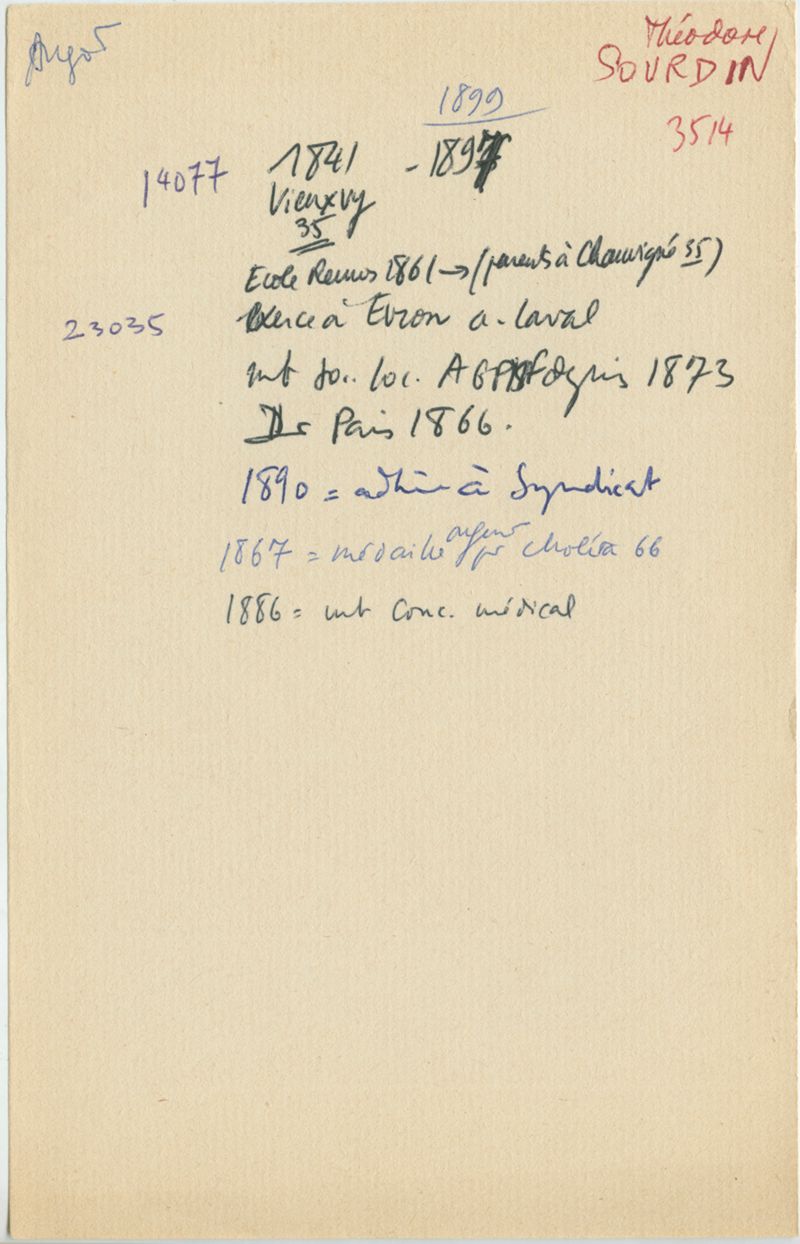 Argot
Théodore
SOURDIN
3514
1899
14077 1841 - 1897
Vieuxvy
35
Ecole Rennes 1861 → (parents à Chauvigné 35)
23035 Exerce à Evron a. Laval
mb so. loc. AGPMF depuis 1873
Dr Paris 1866.
1890 = adhère à Syndicat
1867 = médaille argent pr choléra 66
1886 = mb Conc. médical